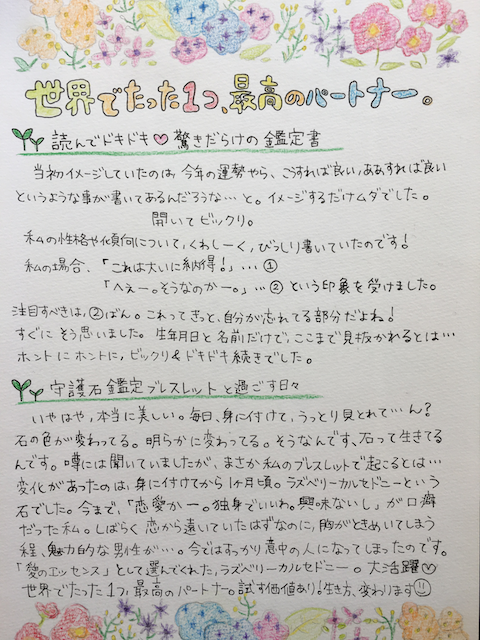 世界でたった1つ、最高のパートナー。
読んでドキドキ♡驚きだらけの鑑定書
当初イメージしていたのは、今年の運勢やら、こうすれば良い、ああすれば良い
というような事が書いてあるんだろうな…と。イメージするだけムダでした。
開いてビックリ。
私の性格や傾向について、くわしーく、びっしり書いていたのです!
私の場合、「これは大いに納得!」…①
「へぇー。そうなのかー。」…②という印象を受けました。
注目すべきは、②ばん。これってきっと、自分が忘れてる部分だよね!
すぐにそう思いました。生年月日と名前だけで、ここまで見抜かれるとは…
ホントにホントに、ビックリ&ドキドキ続きでした。
守護石鑑定ブレスレットと過ごす日々
いやはや、本当に美しい。毎日、身に付けて、うっとり見とれて…ん?
石の色が変わってる。明らかに変わってる。そうなんです、石って生きてる
んです。噂には聞いていましたが、まさか私のブレスレットで起こるとは…
変化があったのは、身に付けてから1ヶ月頃。ラズベリーカルセドニーという
石でした。今まで、「恋愛かー。独身でいいわ。興味ないし」が口癖
だった私。しばらく恋から遠いていたはずなのに、胸がときめいてしまう
程、魅力的な男性が…。今ではすっかり意中の人になってしまったのです。
「愛のエッセンス」として選んでくれた、ラズベリーカルセドニー。大活躍♡
世界でたった1つ、最高のパートナー。試す価値あり!生き方、変わります☺